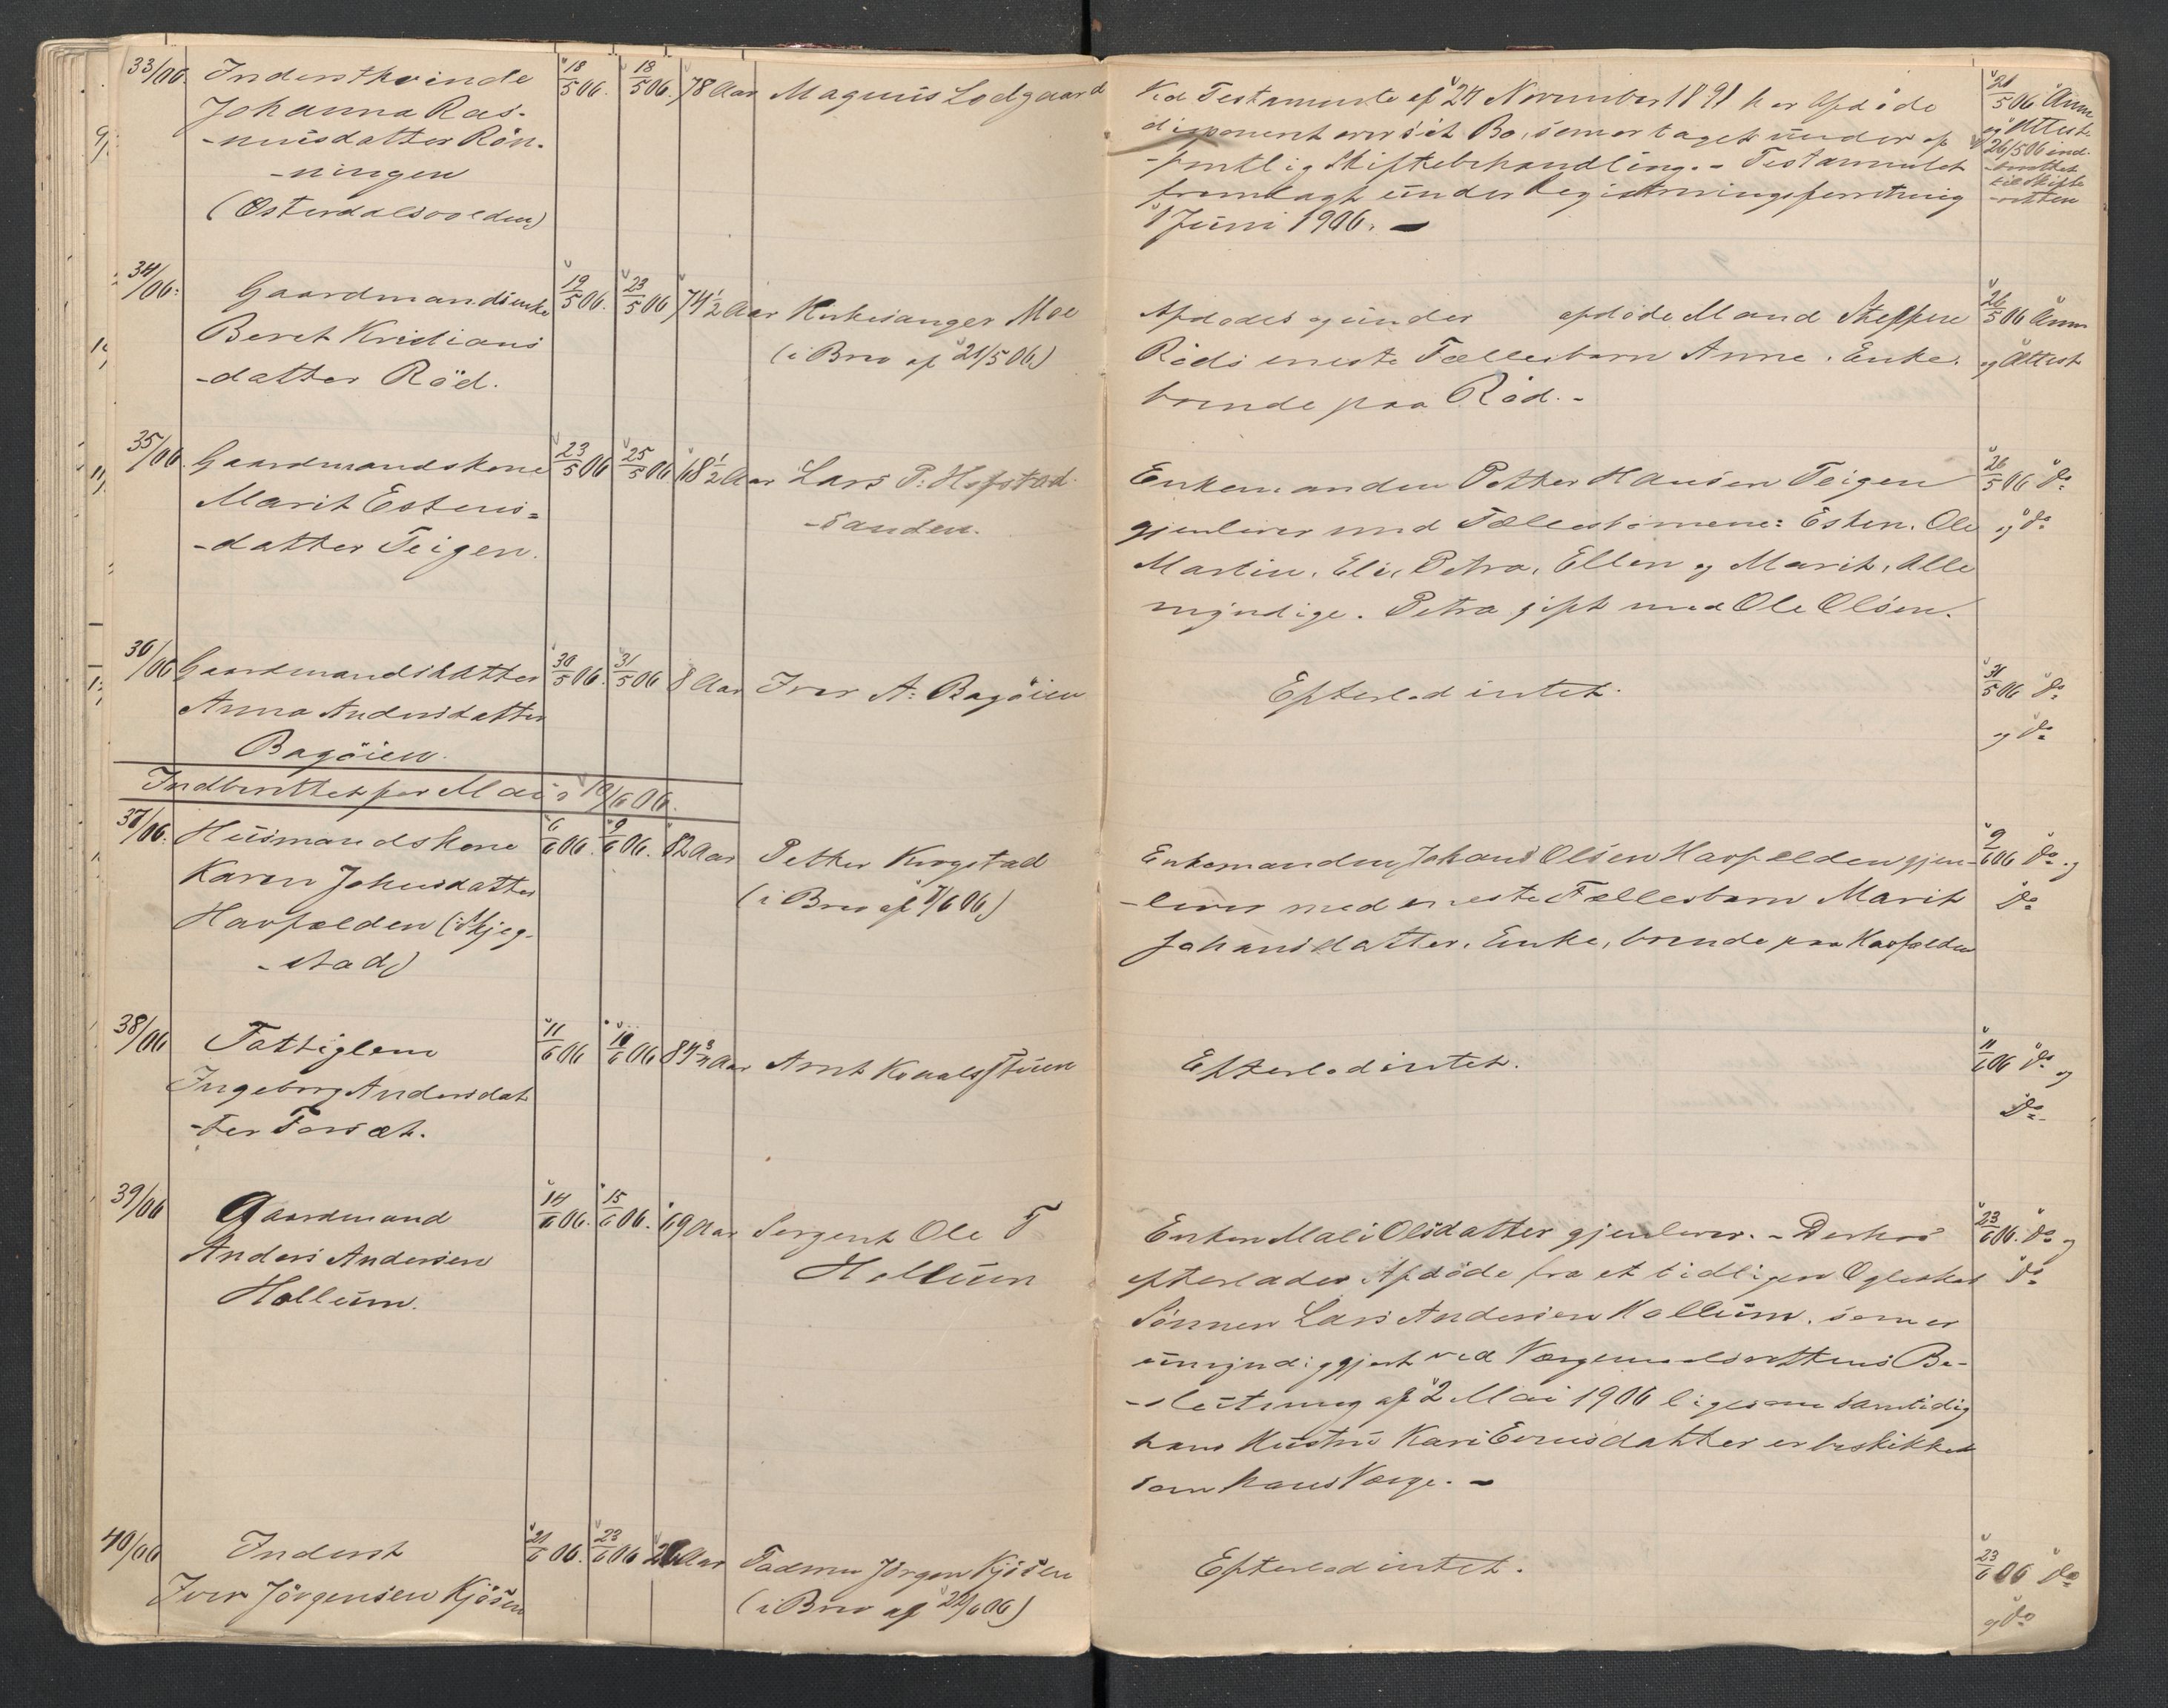 33/06. Inderstkvinde 18/5 06. 18/5 06. 78 Aar Magnus Lodgaard
Johanna Ras-
-musdatter Rön-
-ningen
(Østerdalsvolden)
34/06: Gaardmandsenke 19/5 06. 23/5 06 74 1/2 Aar Kirkesanger Moe
Beret Kristians (i Brev af 21/5 06)
-datter Röd.
35/06. Gaardmandskone 23/5 06 25/5 06 68 1/2 Aar Lars P. Hofstad-
Marit Estens= -sanden.
-datter Teigen.
36/06 Gaardmandsdatter 30/5 06. 31/5 06 8 Aar Iver A. Bagöien
Anna Andersdatter
Bagöien.
Indberettet for Mai 10/6 06.
37/06. Husmandskone 6/6 06. 9/6 06. 82 Aar Petter Krogstad
Karen Johnsdatter (i Brev af 7/6 06)
Havfælden (: Skjeg-
-stad)
38/06 Fattiglem 11/6 06 10/6 06 84 3/4 Aar Arnt
Ingeborg Andersdat
-ter Forsæt.
39/06 Gaardmand 14/6 06. 15/6 06. 69 Aar Sergent Ole T
Anders Andersen Hollum
Hollum.
40/06 Inderst 21/6 06. 23/6 06 Aar Faderen Jörgen Kjösen
Iver Jörgensen Kjösen (i Brev af 22/6 06)
Ved Testamente af 24 November 1891 har Afdöde 21/5 06 Anm
disponeret over sit Bo, som er taget under of og Attest.
-fentlig Skiftebehandling. - Testamentet 26/5 06 ind-
fremlagt under Registreringsforretning -berettet
1 Juni 1906. - til Skifte
-retten
Afdödes og under afdöde Mand Steffen 26/5 06 Anm
Röds eneste Fællesbarn Anne. Enke. og Attest
boende paa Röd. -
Enkemanden Petter Hansen Teigen 26/5 06 do
gjenlever med Fællesbörnene: Esten, Ole og do
Martin, Eli, Petra, Ellen og Marit, Alle
myndige. Petra gift med Ole Olsen.
Efterlod intet. 31/5 06 do
og do
Enkemanden Johans Olsen Havfælden gjen- 9/6 06 do og
-lever med eneste Fællesbarn Marit do
Johansdatter. Enke, boende paa Havfælden
Efterlod intet. 11/6 06 do og
do
Enken Mali Olsdatter gjenlever. - Derhos 23/6 06. do og
efterlader Afdöde fra et tidligere Ægteskab do
Sönnen Lars Andersen Hollum, som er
umyndiggjort ved Værgemaalsrettens Be-
-slutning af 2 Mai 1906 ligesom samtidig
hans Hustru Kari datter er beskikket
som hans Værge. -
Efterlod intet. 23/6 06 do
og do